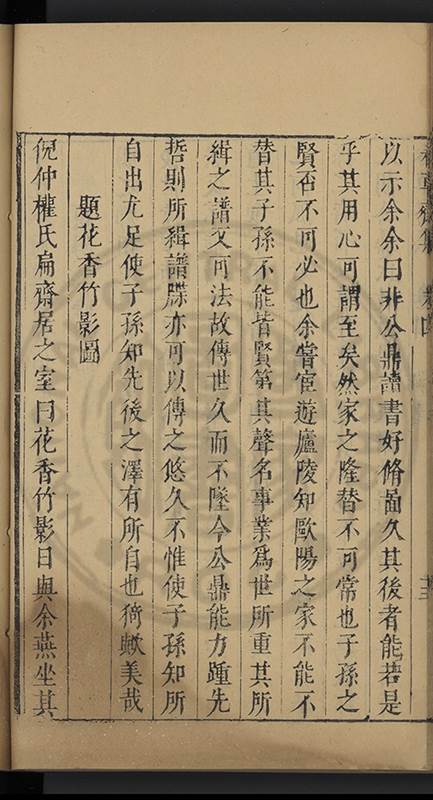 以示余余曰非公鼎讀書好脩圖久其後者能若是
乎其用心可謂至矣然家之隆替不可常也子孫之
賢否不可必也余嘗宦遊廬陵知歐陽之家不能不
替其子孫不能皆賢第其聲名事業爲世所重其所
緝之譜又可法故傳世久而不墜今公鼎能力踵先
哲則所緝譜牒亦可以傳之悠久不惟使子孫知所
自出尤足使子孫知先後之澤有所自也猗歟美哉
題花香竹影圖
倪仲權氏扁齋居之室曰花香竹影日與余燕坐其